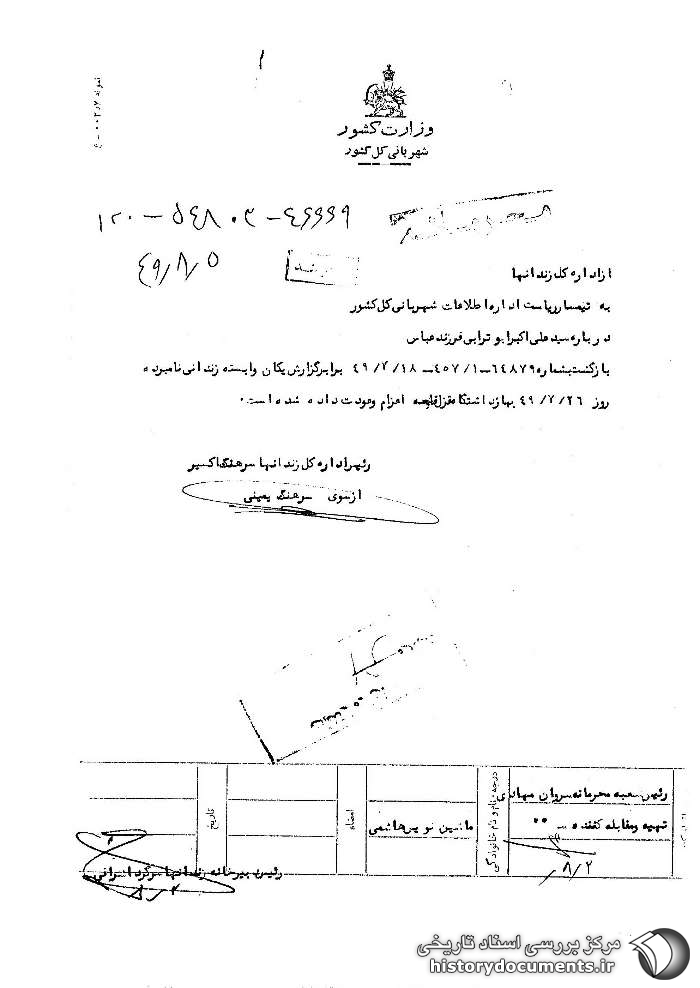 وزارت کشور
شهربانی کل کشور
۱۲۰ – ۵۴۸۰۳ – ۴۶۶۶۹
۴۹/۸/۵
از اداره کل زندانها
به تیمسار ریاست اداره اطلاعات شهربانی کل کشور
درباره سید علی اکبر ابوترابی فرزند عباس
بازگشت بشماره ۶۴۸۷۹–۴۵۷/۱–۴۹/۷/۱۸ برابر گزارش یکان وابسته زندانی نامبرده
روز ۴۹/۷/۲۶ به بازداشتگاه قزل قلعه اعزام و عودت داده شده است.
رئیس اداره کل زندانها سرهنگ اکسیر
از سوی سرهنگ یمینی
درجه و نام و نام خانوادگی
رئیس شعبه محرمانه سروان
تهیه و مقابله کننده
ماشین نویس هاشمی
امضاء
تاریخ
۸/۲
رئیس دبیرخانه زندانها سرگرد ایرانی
مرکز بررسی اسناد تاریخی
historydocuments.ir